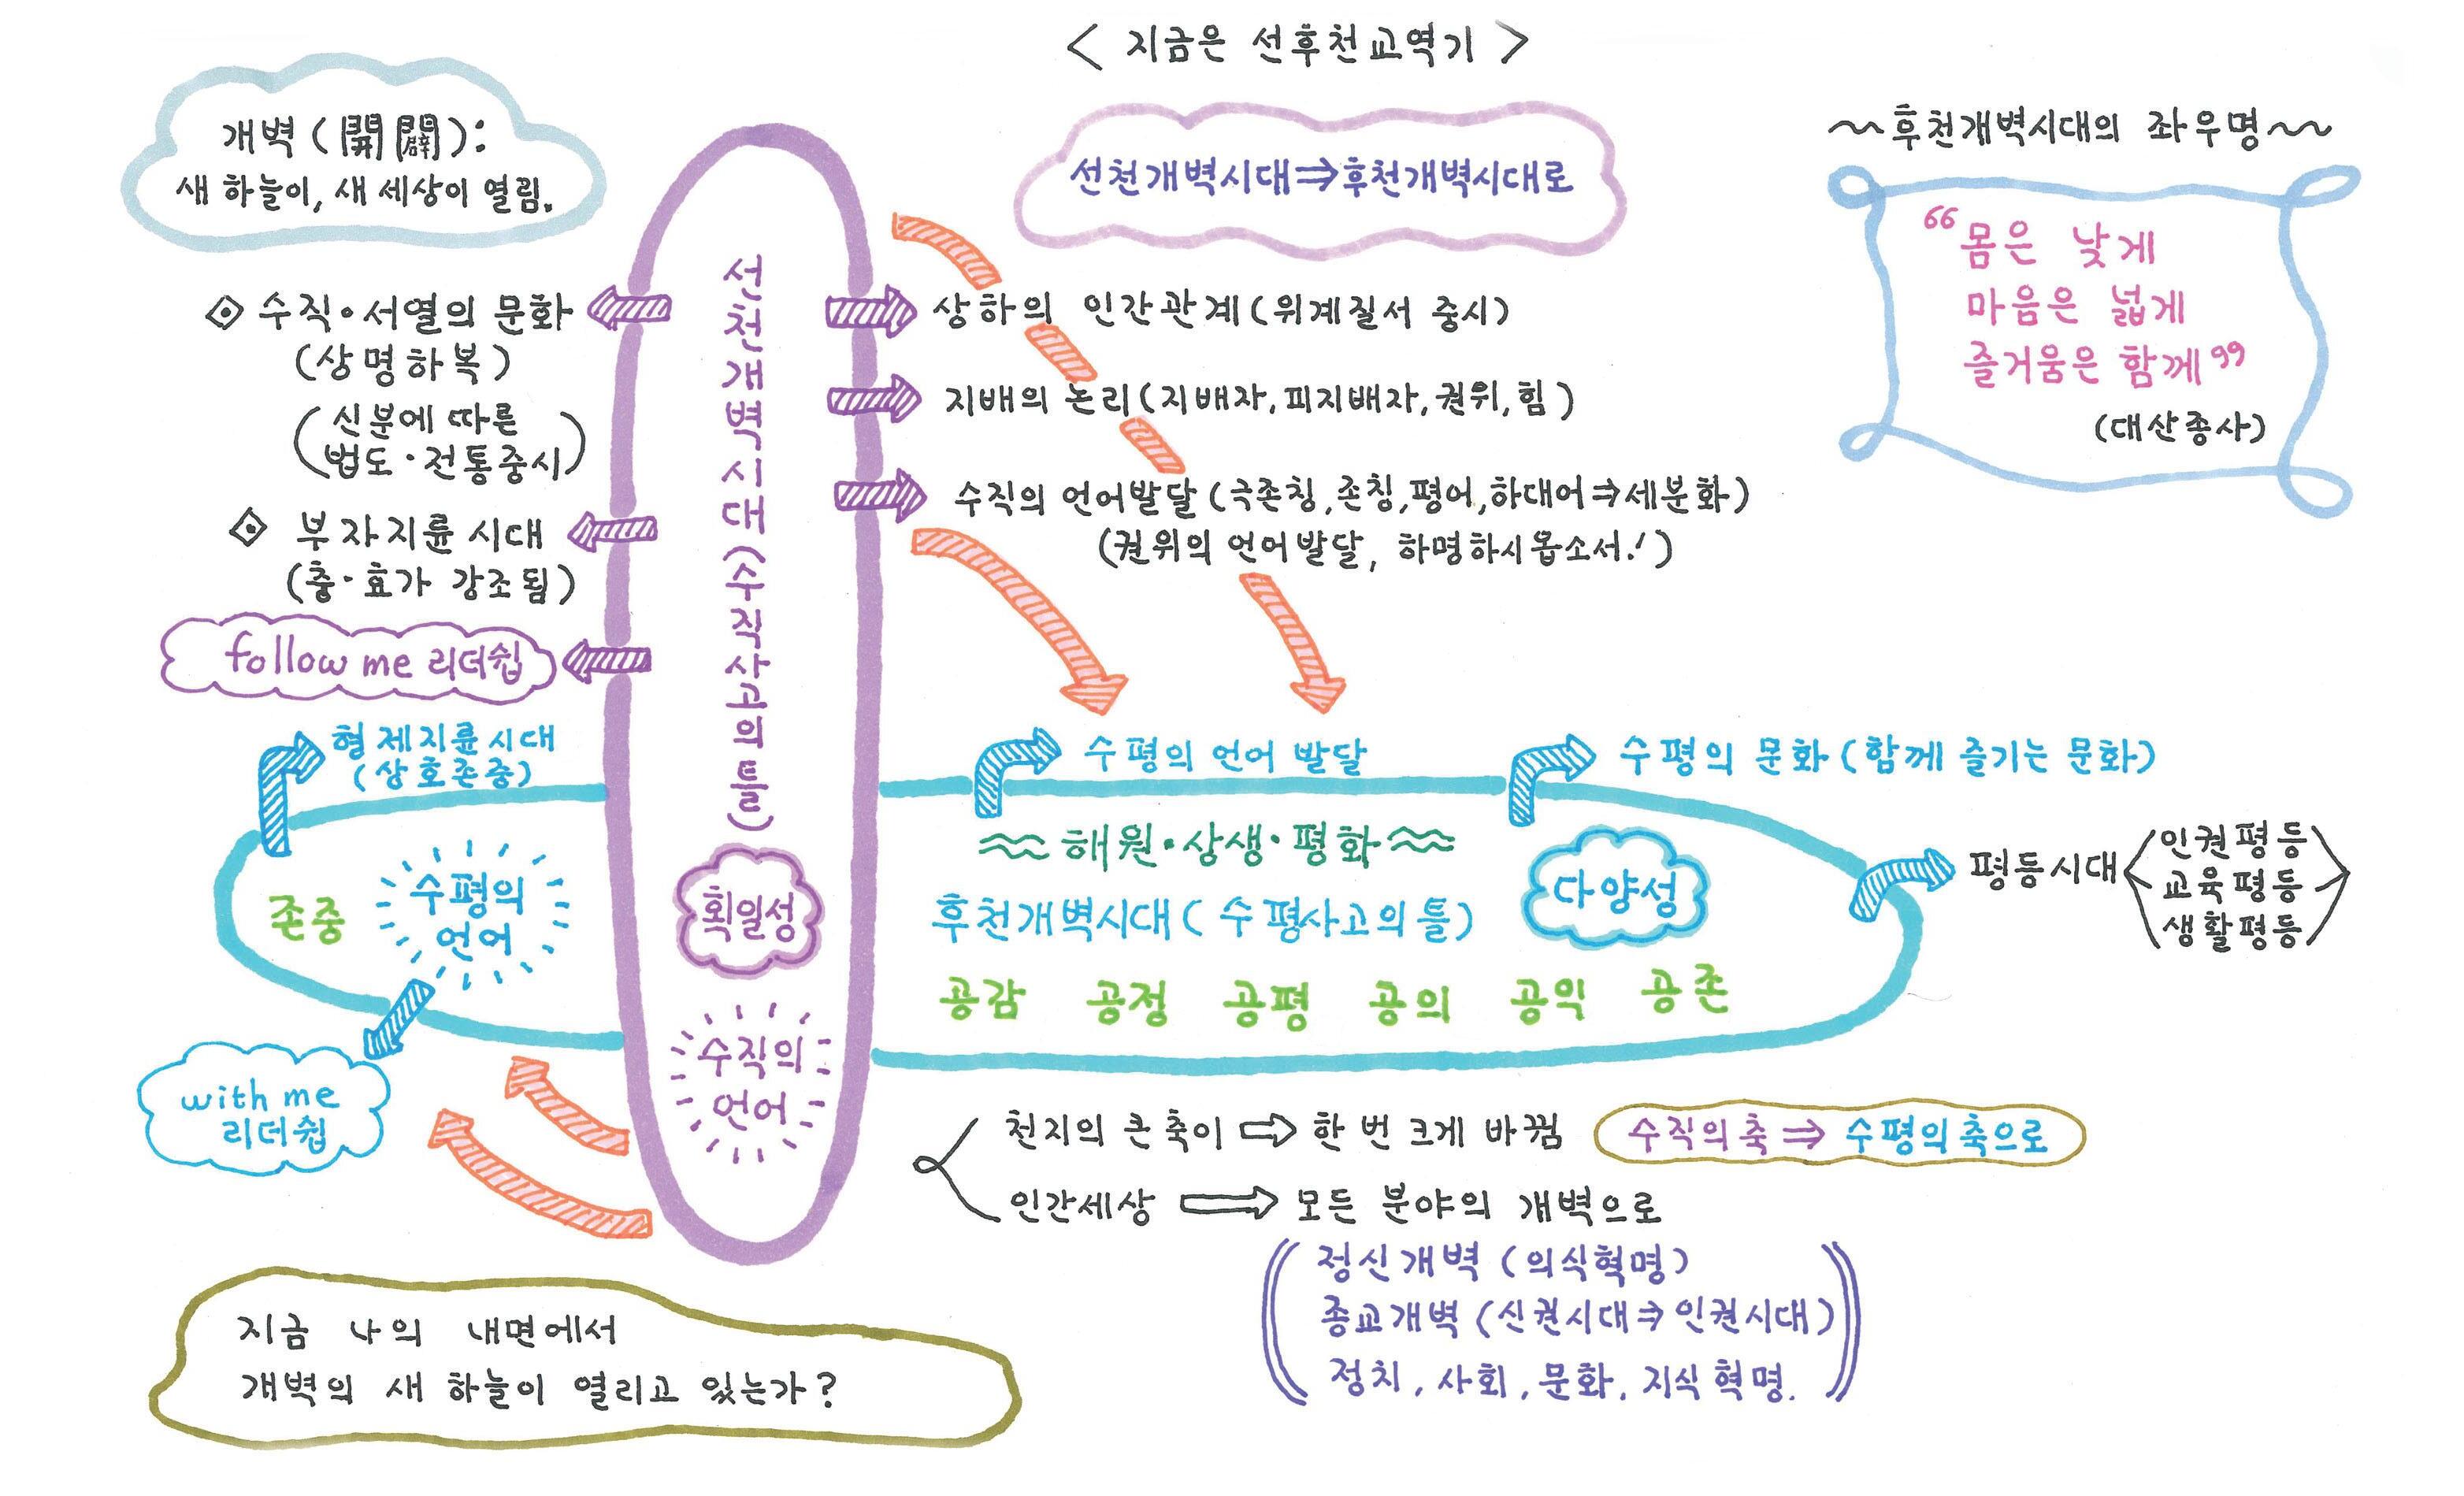 < 지금은 선후천교역기 >
개벽(開闢):
새 하늘이, 새 세상이 열림.
선천개벽시대⇒후천개벽시대로
~후천개벽시대의 좌우명~
“몸은 낮게
마음은 넓게
즐거움은 함께”
(대산종사)
선천개벽시대(수직사고의 틀)
획일성
수직의
언어
◈ 수직·서열의 문화
(상명하복)
(신분에 따른
법도·전통중시)
◈ 부자지륜 시대
(충·효가 강조됨)
follow me 리더쉽
상하의 인간관계(위계질서 중시)
지배의 논리(지배자, 피지배자, 권위, 힘)
수직의 언어발달(극존칭, 존칭, 평어, 하대어⇒세분화)
(권위의 언어발달, 하명하시옵소서!)
형제지륜시대
(상호존중)
수평의 언어 발달
수평의 문화(함께 즐기는 문화)
존중
수평의
언어
with me
리더쉽
해원·상생·평화
후천개벽시대(수평사고의 틀)
다양성
공감 공정 공평 공의 공익 공존
평등시대
인권평등
교육평등
생활평등
천지의 큰 축이 ⇨ 한 번 크게 바뀜
수직의 축 ⇒ 수평의 축으로
인간세상 ⇨ 모든 분야의 개벽으로
정신개벽(의식혁명)
종교개벽(신권시대⇒인권시대)
정치, 사회, 문화, 지식혁명.
지금 나의 내면에서
개벽의 새 하늘이 열리고 있는가?